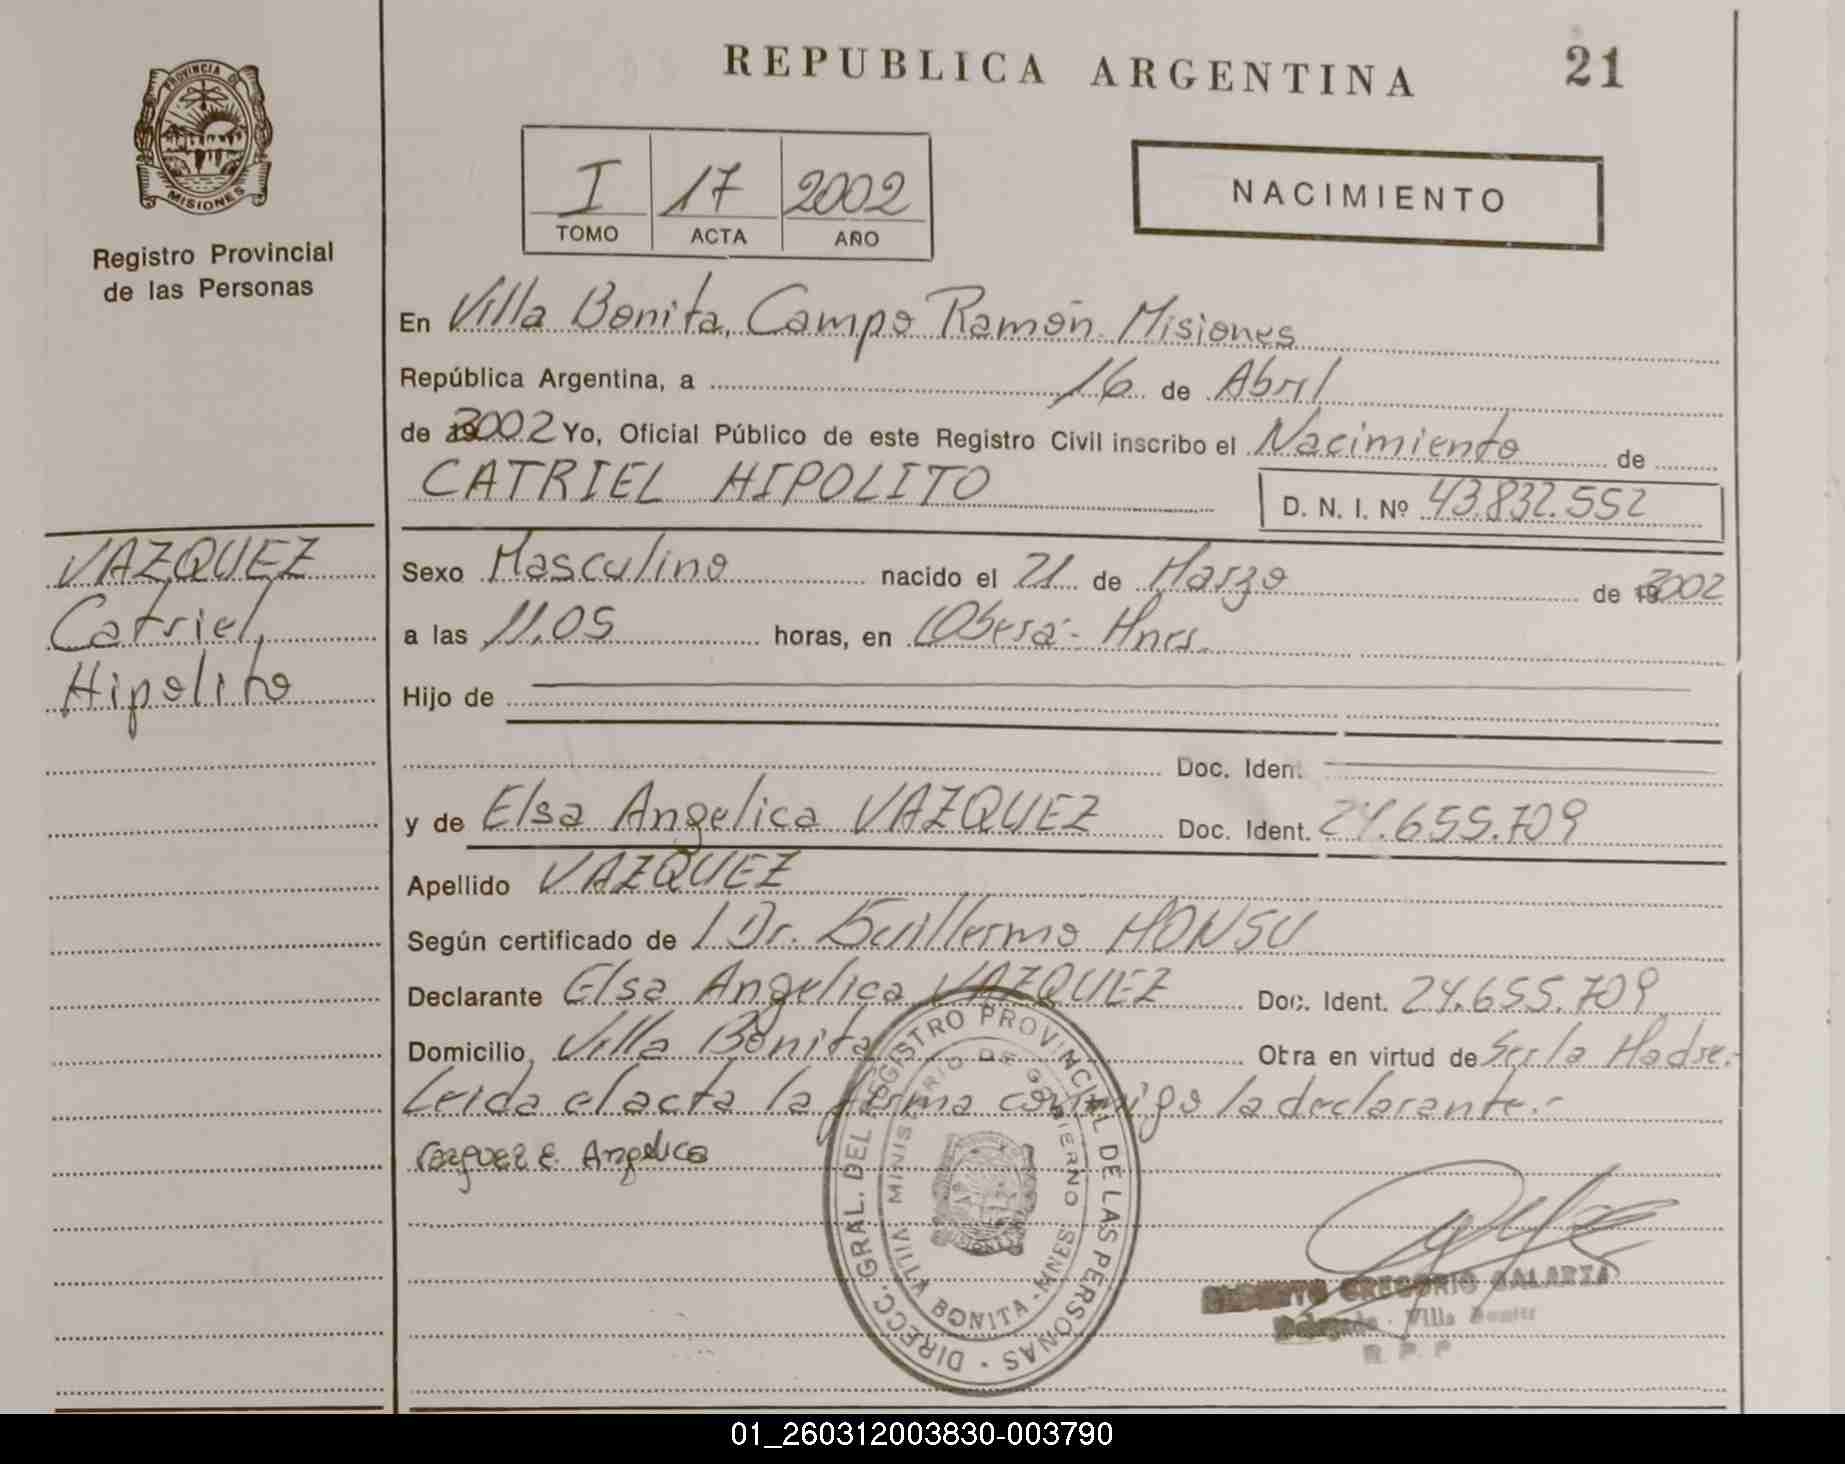 REPUBLICA ARGENTINA 21
PROVINCIA DE
MISIONES
Registro Provincial
de las Personas
I 17 2002
TOMO ACTA AÑO
NACIMIENTO
En Villa Bonita, Campo Ramón. Misiones
República Argentina, a 16 de Abril
de 2002 Yo, Oficial Público de este Registro Civil inscribo el Nacimiento de
CATRIEL HIPOLITO
D. N. I. Nº 43.832.552
VAZQUEZ
Catriel,
Hipolito
Sexo Masculino nacido el 21 de Marzo de 2002
a las 11,05 horas, en Oberá - Mnes.
Hijo de
Doc. Ident.
y de Elsa Angelica VAZQUEZ Doc. Ident. 24.655.709
Apellido VAZQUEZ
Según certificado de Dr. Guillermo MONSU
Declarante Elsa Angelica VAZQUEZ Doc. Ident. 24.655.709
Domicilio Villa Bonita Obra en virtud de Ser la Madre.-
Leida el acta la firma conmigo la declarante.-
Vazquez E. Angelica
DIRECC. GRAL. DEL REGISTRO PROVINCIAL DE LAS PERSONAS
MINISTERIO DE GOBIERNO
VILLA BONITA - MNES
GREGORIO GALARZA
Delegado - Villa Bonita
R. P. P
01_260312003830-003790